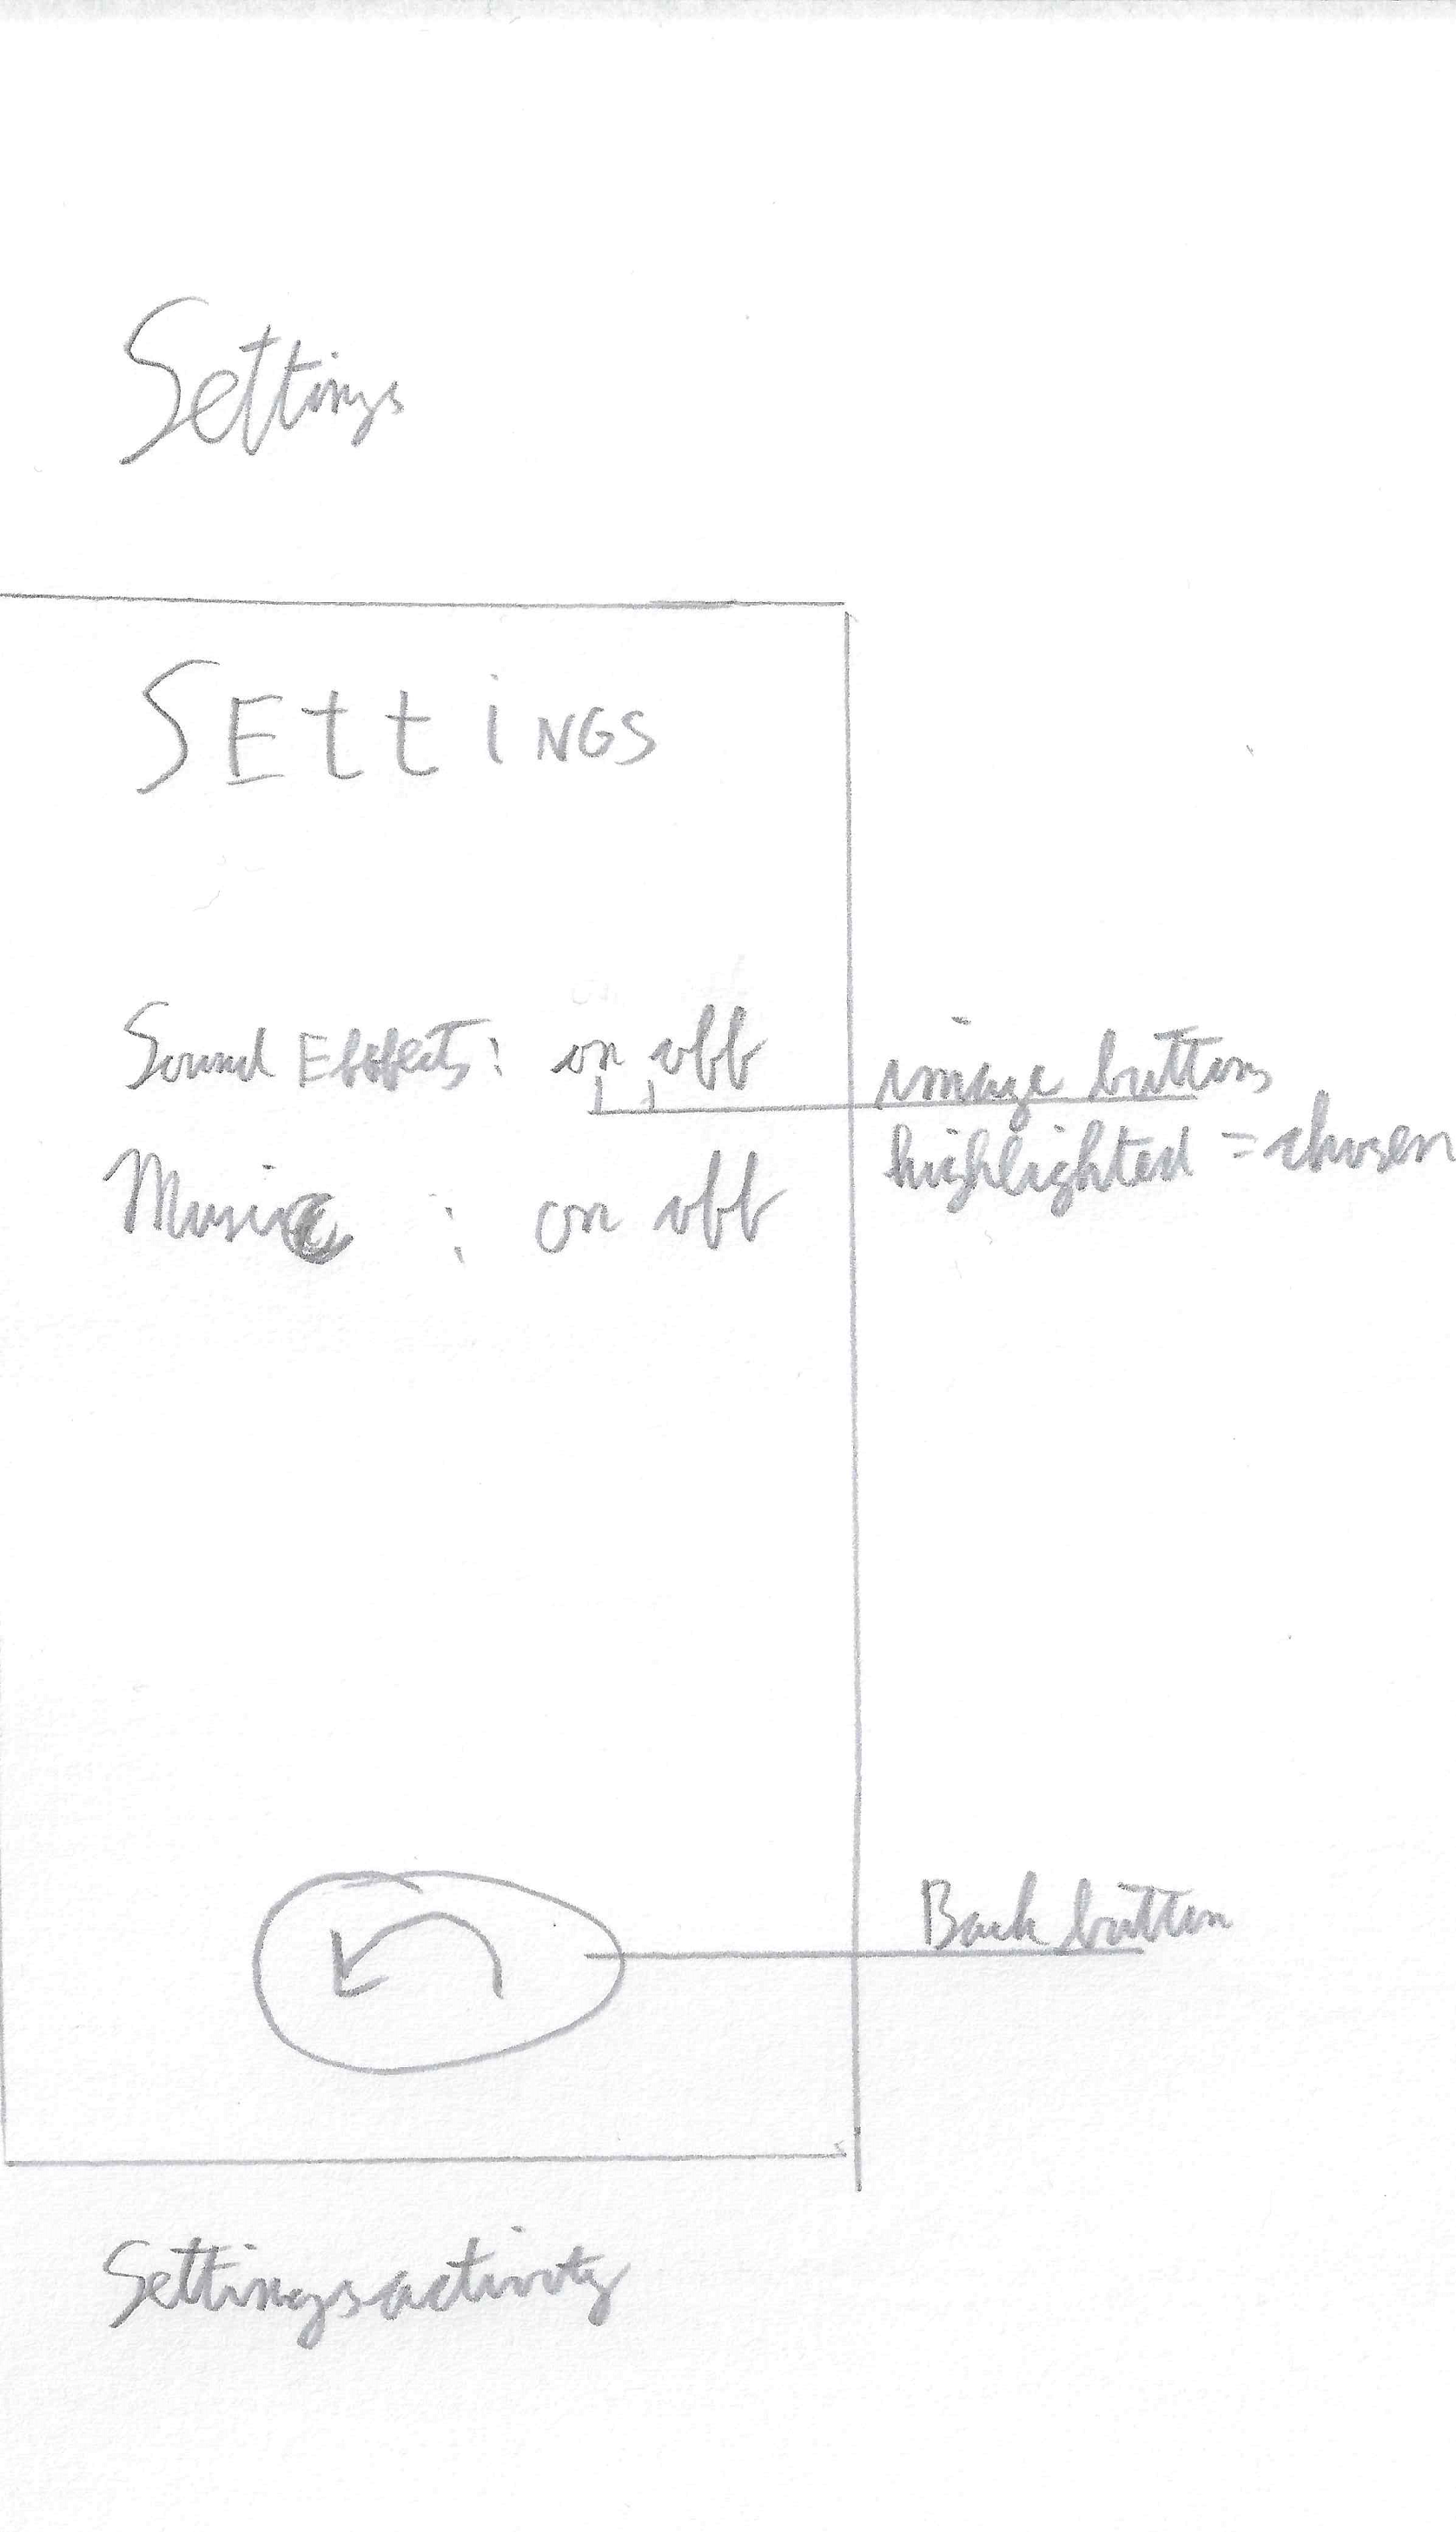 Settings
SEttiNGS
Sound Effects: on off
image buttons
highlighted = chosen
Music : on off
Back button
Settingsactivity